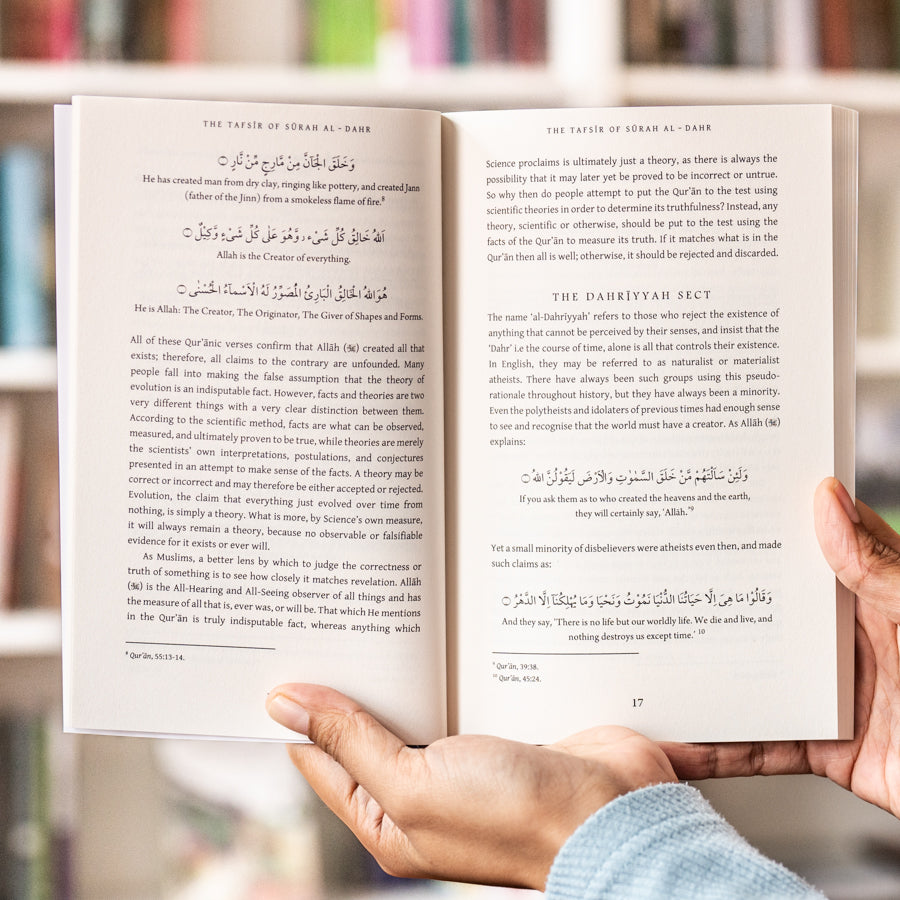 THE TAFSĪR OF SŪRAH AL - DAHR
وَخَلَقَ الْجَآنَّ مِنْ مَّارِجٍ مِّنْ نَّارٍ ۝
He has created man from dry clay, ringing like pottery, and created Jann
(father of the Jinn) from a smokeless flame of fire.⁸
اَللهُ خَالِقُ كُلِّ شَىْءٍ ؗ وَّهُوَ عَلٰى كُلِّ شَىْءٍ وَّكِيْلٌ ۝
Allah is the Creator of everything.
هُوَ اللهُ الْخَالِقُ الْبَارِئُ الْمُصَوِّرُ لَهُ الْاَسْمَآءُ الْحُسْنٰى ۝
He is Allah: The Creator, The Originator, The Giver of Shapes and Forms.
All of these Qur’ānic verses confirm that Allāh (ﷻ) created all that
exists; therefore, all claims to the contrary are unfounded. Many
people fall into making the false assumption that the theory of
evolution is an indisputable fact. However, facts and theories are two
very different things with a very clear distinction between them.
According to the scientific method, facts are what can be observed,
measured, and ultimately proven to be true, while theories are merely
the scientists’ own interpretations, postulations, and conjectures
presented in an attempt to make sense of the facts. A theory may be
correct or incorrect and may therefore be either accepted or rejected.
Evolution, the claim that everything just evolved over time from
nothing, is simply a theory. What is more, by Science’s own measure,
it will always remain a theory, because no observable or falsifiable
evidence for it exists or ever will.
As Muslims, a better lens by which to judge the correctness or
truth of something is to see how closely it matches revelation. Allāh
(ﷻ) is the All-Hearing and All-Seeing observer of all things and has
the measure of all that is, ever was, or will be. That which He mentions
in the Qur’ān is truly indisputable fact, whereas anything which
⁸ Qur’ān, 55:13-14.
THE TAFSĪR OF SŪRAH AL - DAHR
Science proclaims is ultimately just a theory, as there is always the
possibility that it may later yet be proved to be incorrect or untrue.
So why then do people attempt to put the Qur’ān to the test using
scientific theories in order to determine its truthfulness? Instead, any
theory, scientific or otherwise, should be put to the test using the
facts of the Qur’ān to measure its truth. If it matches what is in the
Qur’ān then all is well; otherwise, it should be rejected and discarded.
THE DAHRĪYYAH SECT
The name ‘al-Dahriyyah’ refers to those who reject the existence of
anything that cannot be perceived by their senses, and insist that the
‘Dahr’ i.e the course of time, alone is all that controls their existence.
In English, they may be referred to as naturalist or materialist
atheists. There have always been such groups using this pseudo-
rationale throughout history, but they have always been a minority.
Even the polytheists and idolaters of previous times had enough sense
to see and recognise that the world must have a creator. As Allāh (ﷻ)
explains:
وَلَئِنْ سَاَلْتَهُمْ مَّنْ خَلَقَ السَّمٰوٰتِ وَالْاَرْضَ لَيَقُوْلُنَّ اللهُ ۝
If you ask them as to who created the heavens and the earth,
they will certainly say, ‘Allāh.”⁹
Yet a small minority of disbelievers were atheists even then, and made
such claims as:
وَقَالُوْا مَا هِىَ اِلَّا حَيَاتُنَا الدُّنْيَا نَمُوْتُ وَنَحْيَا وَمَا يُهْلِكُنَآ اِلَّا الدَّهْرُ ۝
And they say, ‘There is no life but our worldly life. We die and live, and
nothing destroys us except time.’ ¹⁰
⁹ Qur’ān, 39:38.
¹⁰ Qur’ān, 45:24.
17